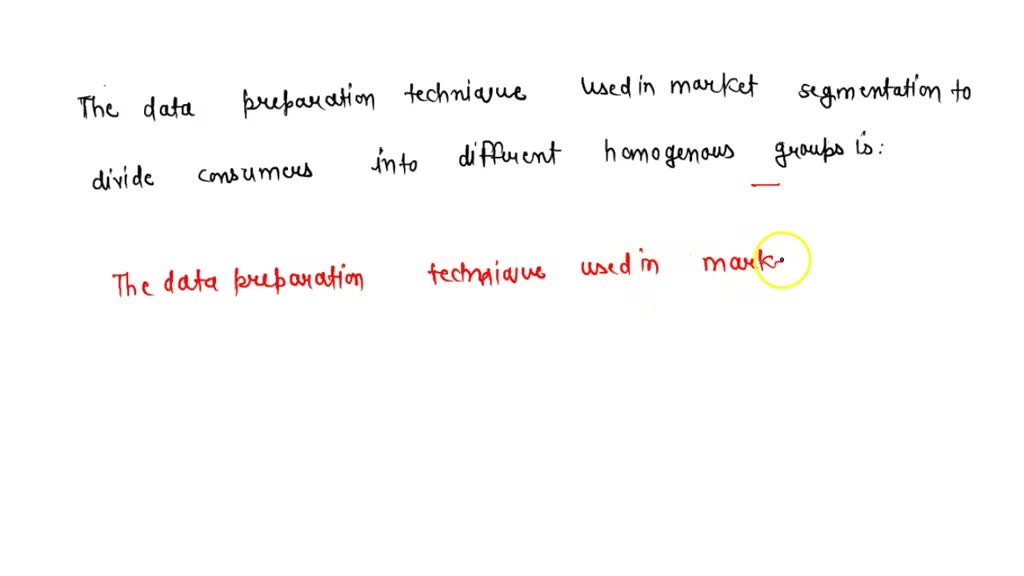 The data preparation technique used in market segmentation to
divide consumers into different homogenous groups is:
The data preparation technique used in mark